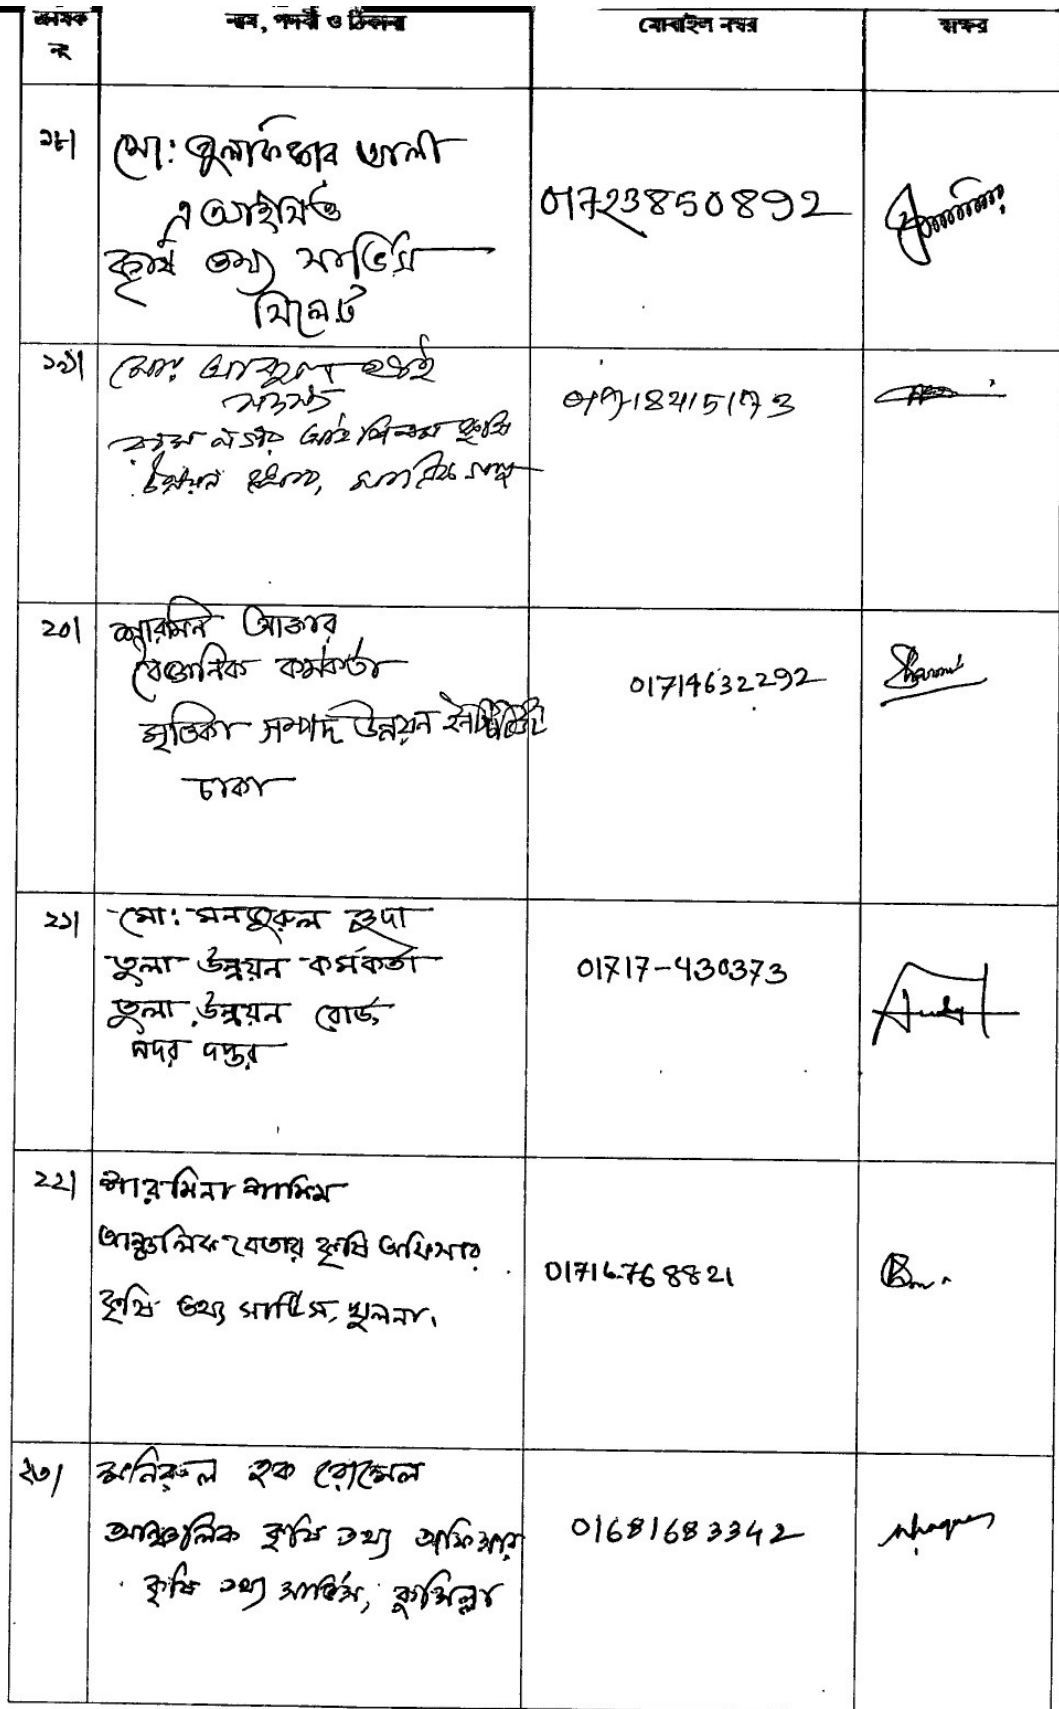 ক্রমিক নং
নাম, পদবী ও ঠিকানা
মোবাইল নম্বর
স্বাক্ষর
১৮।
মো: জুলফিকার আলী
এআইসিও
কৃষি তথ্য সার্ভিস
সিলেট
01723850892
১৯।
মোঃ আব্দুল হাই
সদস্য
উন্নয়ন
20।
শারমিন আক্তার
বৈজ্ঞানিক কর্মকর্তা
মৃত্তিকা সম্পদ উন্নয়ন ইনস্টিটিউট
ঢাকা
01714632292
Sharmin
২১।
মো: মনজুরুল হুদা
তুলা উন্নয়ন কর্মকর্তা
তুলা উন্নয়ন বোর্ড,
সদর দপ্তর
01717-430373
২২।
শারমিনা শামিম
আঞ্চলিক বেতার কৃষি অফিসার
কৃষি তথ্য সার্ভিস, খুলনা।
01716768821
২৩।
মনিরুল হক রোমেল
আঞ্চলিক কৃষি তথ্য অফিসার
কৃষি তথ্য সার্ভিস, কুমিল্লা
01681683342